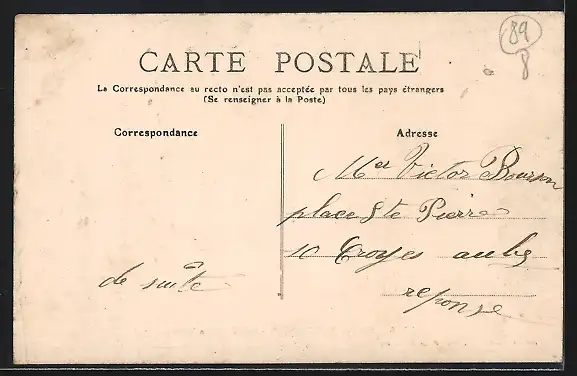 89
8
CARTE POSTALE
La Correspondance au recto n'est pas acceptée par tous les pays étrangers
(Se renseigner à la Poste)
Correspondance
Adresse
Victor Bourson
place Ste Pierre
10 Troyes aube
de suite
reponse